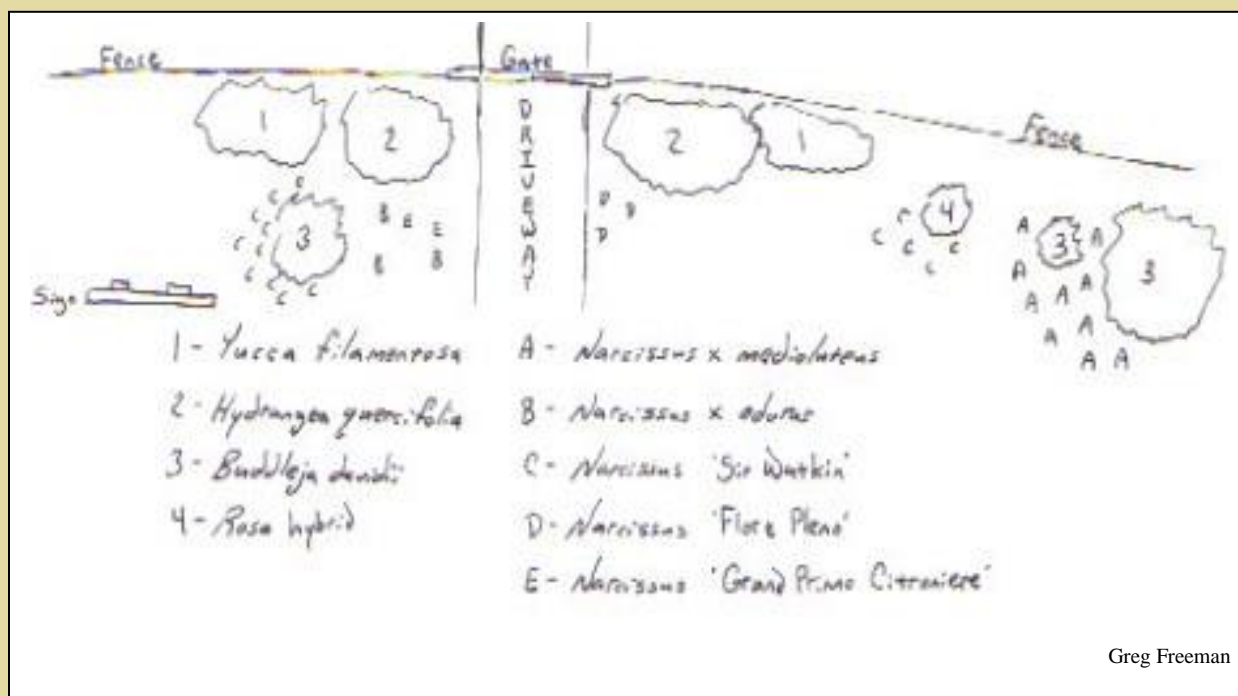 Fence
Gate
Fence
DRIVEWAY
1 2 2 1
C C C C C C C C C C
3
B E E
B B
D D
D
4
C C C C C
A 3 A 3
A A
A A
A A
A A
Sign
1 - Yucca filamentosa
2 - Hydrangea quercifolia
3 - Buddleja davidii
4 - Rosa hybrid
A - Narcissus x medioluteus
B - Narcissus x odorus
C - Narcissus 'Sir Watkin'
D - Narcissus 'Flore Pleno'
E - Narcissus 'Grand Primo Citroniere'
Greg Freeman